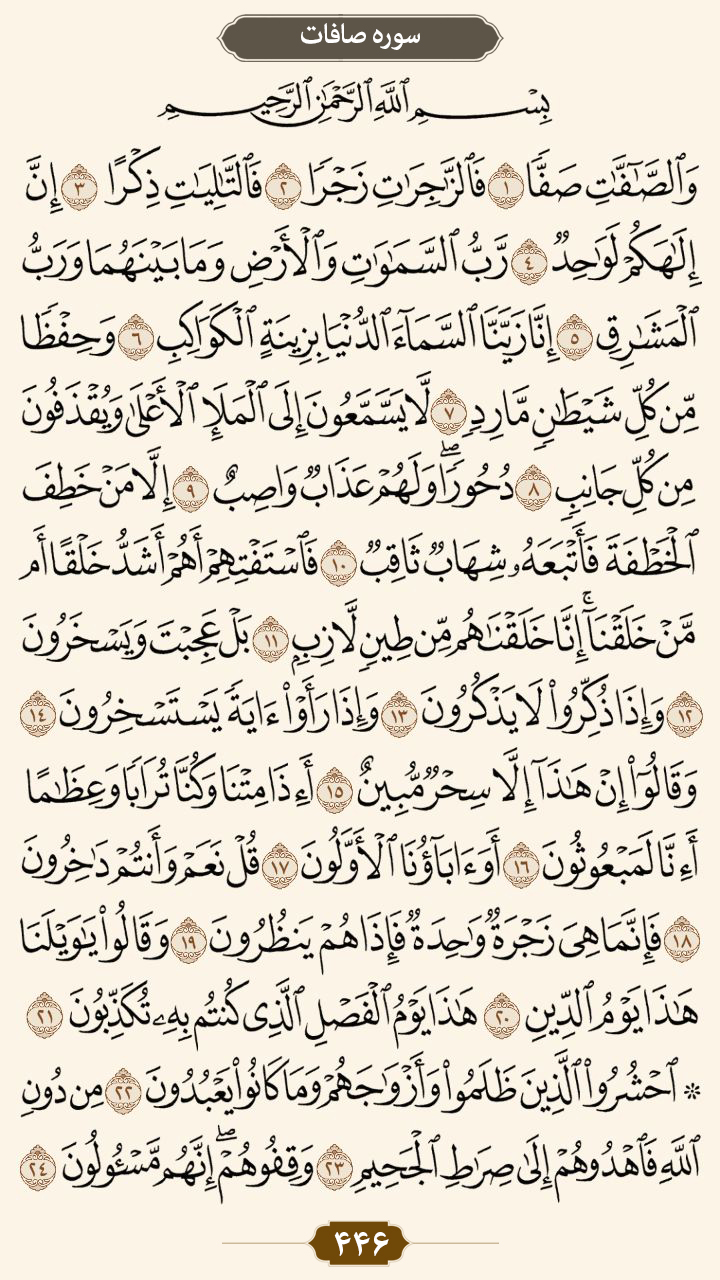 سوره صافات
بِسْمِ ٱللَّهِ ٱلرَّحْمَٰنِ ٱلرَّحِيمِ
وَٱلصَّٰٓفَّٰتِ صَفًّا ١ فَٱلزَّٰجِرَٰتِ زَجْرًا ٢ فَٱلتَّٰلِيَٰتِ ذِكْرًا ٣ إِنَّ
إِلَٰهَكُمْ لَوَٰحِدٌ ٤ رَّبُّ ٱلسَّمَٰوَٰتِ وَٱلْأَرْضِ وَمَا بَيْنَهُمَا وَرَبُّ
ٱلْمَشَٰرِقِ ٥ إِنَّا زَيَّنَّا ٱلسَّمَآءَ ٱلدُّنْيَا بِزِينَةٍ ٱلْكَوَاكِبِ ٦ وَحِفْظًا
مِّن كُلِّ شَيْطَٰنٍ مَّارِدٍ ٧ لَّا يَسَّمَّعُونَ إِلَى ٱلْمَلَإِ ٱلْأَعْلَىٰ وَيُقْذَفُونَ
مِن كُلِّ جَانِبٍ ٨ دُحُورًا ۖ وَلَهُمْ عَذَابٌ وَاصِبٌ ٩ إِلَّا مَنْ خَطِفَ
ٱلْخَطْفَةَ فَأَتْبَعَهُۥ شِهَابٌ ثَاقِبٌ ١٠ فَٱسْتَفْتِهِمْ أَهُمْ أَشَدُّ خَلْقًا أَم
مَّنْ خَلَقْنَآ ۚ إِنَّا خَلَقْنَٰهُم مِّن طِينٍ لَّازِبٍ ١١ بَلْ عَجِبْتَ وَيَسْخَرُونَ
١٢ وَإِذَا ذُكِّرُوا۟ لَا يَذْكُرُونَ ١٣ وَإِذَا رَأَوْا۟ ءَايَةً يَسْتَسْخِرُونَ ١٤
وَقَالُوٓا۟ إِنْ هَٰذَآ إِلَّا سِحْرٌ مُّبِينٌ ١٥ أَءِذَا مِتْنَا وَكُنَّا تُرَابًا وَعِظَٰمًا
أَءِنَّا لَمَبْعُوثُونَ ١٦ أَوَءَابَآؤُنَا ٱلْأَوَّلُونَ ١٧ قُلْ نَعَمْ وَأَنتُمْ دَٰخِرُونَ
١٨ فَإِنَّمَا هِىَ زَجْرَةٌ وَٰحِدَةٌ فَإِذَا هُمْ يَنظُرُونَ ١٩ وَقَالُوا۟ يَٰوَيْلَنَا
هَٰذَا يَوْمُ ٱلدِّينِ ٢٠ هَٰذَا يَوْمُ ٱلْفَصْلِ ٱلَّذِى كُنتُم بِهِۦ تُكَذِّبُونَ ٢١
* ٱحْشُرُوا۟ ٱلَّذِينَ ظَلَمُوا۟ وَأَزْوَٰجَهُمْ وَمَا كَانُوا۟ يَعْبُدُونَ ٢٢ مِن دُونِ
ٱللَّهِ فَٱهْدُوهُمْ إِلَىٰ صِرَٰطِ ٱلْجَحِيمِ ٢٣ وَقِفُوهُمْ ۖ إِنَّهُم مَّسْـُٔولُونَ ٢٤
۴۴۶